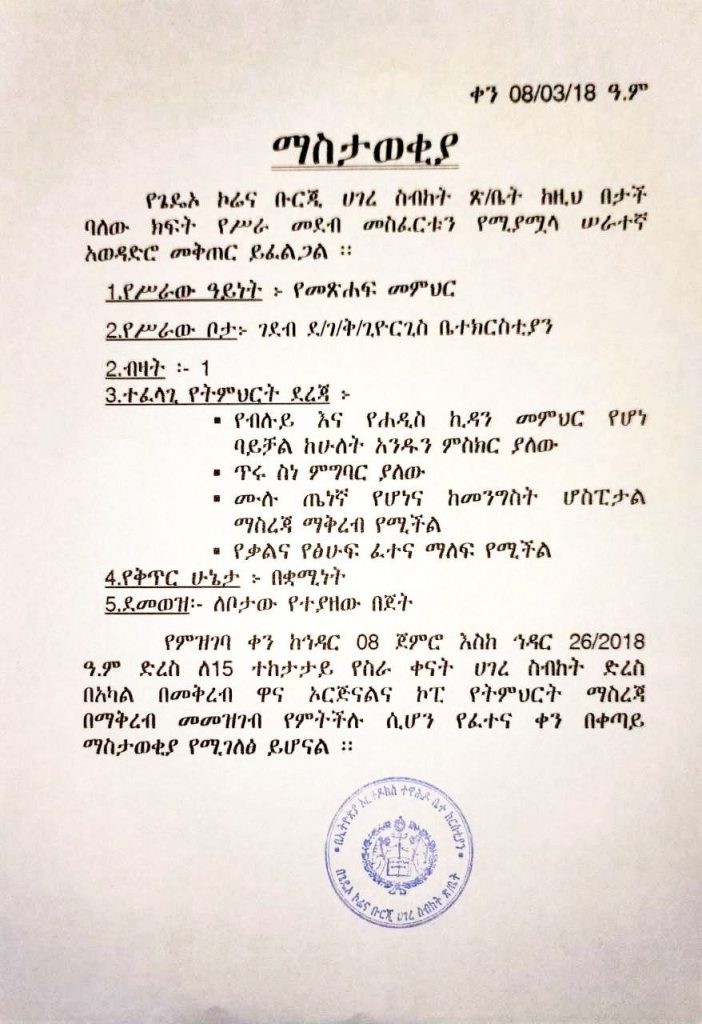 ቀን 08/03/18 ዓ.ም
ማስታወቂያ
የጌዴኦ ኮሬና ቡርጂ ሀገረ ስብከት ጽ/ቤት ከዚህ በታች
ባለው ክፍት የሥራ መደብ መስፈርቱን የሚያሟላ ሠራተኛ
አወዳድሮ መቅጠር ይፈልጋል ፡፡
1.የሥራው ዓይነት ፦ የመጽሐፍ መምህር
2.የሥራው ቦታ፦ ገደብ ደ/ገ/ቅ/ጊዮርጊስ ቤተክርስቲያን
2.ብዛት ፡- 1
3.ተፈላጊ የትምህርት ደረጃ ፦
▪ የብሉይ እና የሐዲስ ኪዳን መምህር የሆነ
ባይቻል ከሁለት አንዱን ምስክር ያለው
▪ ጥሩ ስነ ምግባር ያለው
▪ ሙሉ ጤነኛ የሆነና ከመንግስት ሆስፒታል
ማስረጃ ማቅረብ የሚችል
▪ የቃልና የፅሁፍ ፈተና ማለፍ የሚችል
4.የቅጥር ሁኔታ ፦ በቋሚነት
5.ደመወዝ፡- ለቦታው የተያዘው በጀት
የምዝገባ ቀን ከኅዳር 08 ጀምሮ እስከ ኅዳር 26/2018
ዓ.ም ድረስ ለ15 ተከታታይ የስራ ቀናት ሀገረ ስብከት ድረስ
በአካል በመቅረብ ዋና ኦርጅናልና ኮፒ የትምህርት ማስረጃ
በማቅረብ መመዝገብ የምትችሉ ሲሆን የፈተና ቀን በቀጣይ
ማስታወቂያ የሚገለፅ ይሆናል ፡፡
በኢትዮጵያ ኦርቶዶክስ ተዋሕዶ ቤተ ክርስቲያን
ኮሬና ቡርጂ ሀገረ ስብከት ጽ/ቤት